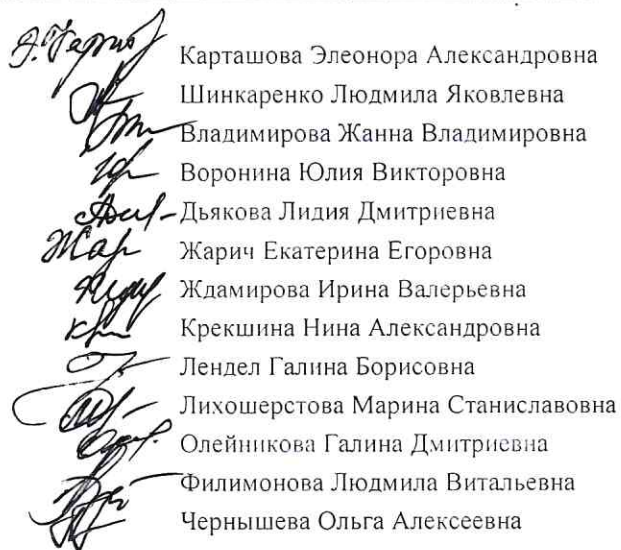 Карташова Элеонора Александровна
Шинкаренко Людмила Яковлевна
Владимирова Жанна Владимировна
Воронина Юлия Викторовна
Дьякова Лидия Дмитриевна
Жарич Екатерина Егоровна
Ждамирова Ирина Валерьевна
Крекшина Нина Александровна
Лендел Галина Борисовна
Лихошерстова Марина Станиславовна
Олейникова Галина Дмитриевна
Филимонова Людмила Витальевна
Чернышева Ольга Алексеевна